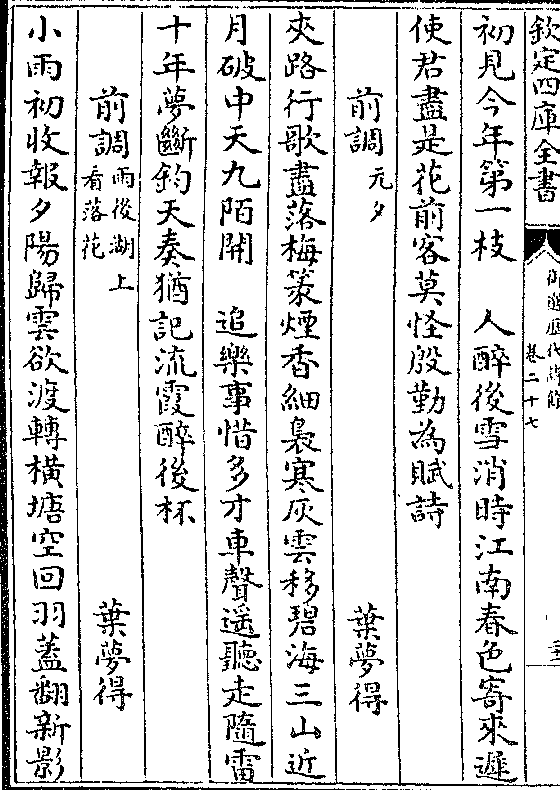 欽定四庫全書
御選歷代詩餘
卷二十七
初見今年第一枝　人醉後雪消時江南春色寄來遲
使君盡是花前客莫怪殷勤為賦詩
前調元夕　葉夢得
夾路行歌盡落梅篆煙香細裊寒灰雲移碧海三山近
月破中天九陌開　追樂事惜多才車聲遥聽走隨雷
十年夢斷鈞天奏猶記流霞醉後杯
前調雨後湖上看落花　葉夢得
小雨初收報夕陽歸雲欲渡轉橫塘空回羽蓋翻新影